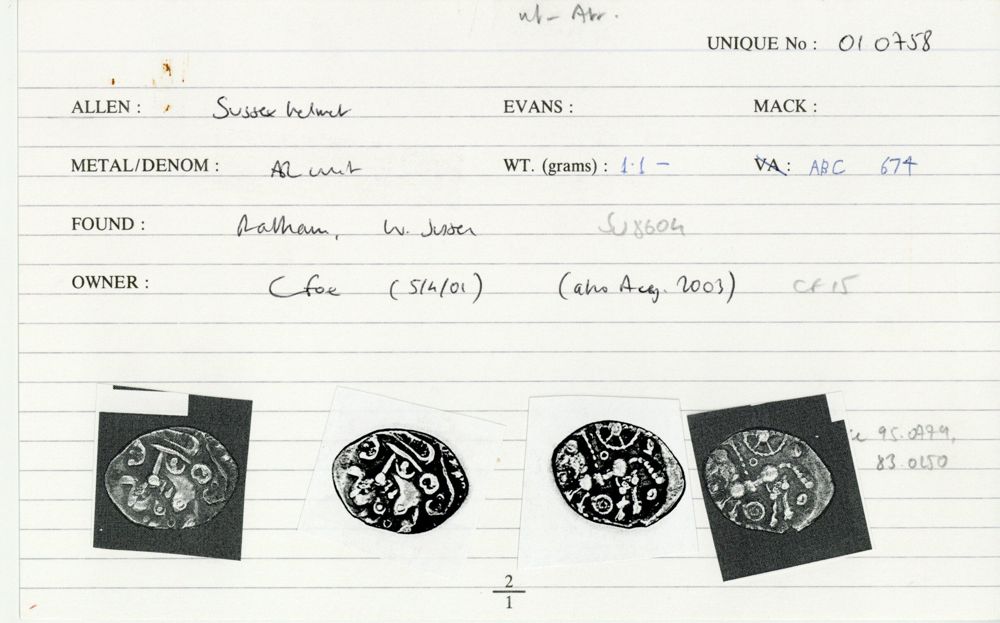 UNIQUE No : 01 0758
ALLEN : Sussex helmet EVANS : MACK :
METAL/DENOM : AR unit WT. (grams) : 1.1 – VA : ABC 674
FOUND : Ratham, W. Sussex SU8604
OWNER : C foe (5/4/01) (also Aug. 2003) CF 15
95.0779,
83.0150
2
1